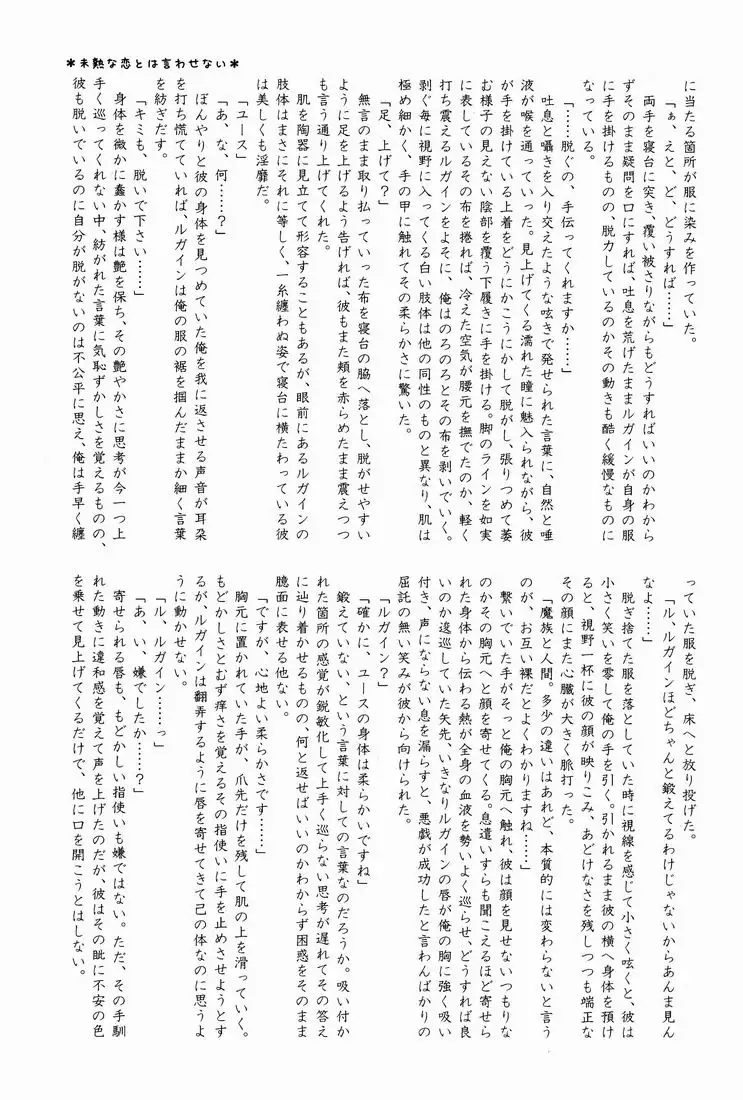 ＊未熟な恋とは言わせない＊
に当たる箇所が服に染みを作っていた。
「ぁ、えと、ど、どうすれば……」
両手を寝台に突き、覆い被さりながらもどうすればいいのかわから
ずそのまま疑問を口にすれば、吐息を荒げたままルガインが自身の服
に手を掛けるものの、脱力しているのかその動きも酷く緩慢なものに
なっている。
「……脱ぐの、手伝ってくれますか……」
吐息と囁きを入り交えたような呟きで発せられた言葉に、自然と唾
液が喉を通っていった。見上げてくる濡れた瞳に魅入られながら、彼
が手を掛けている上着をどうにかこうにかして脱がし、張りつめて萎
む様子の見えない陰部を覆う下履きに手を掛ける。脚のラインを如実
に表しているその布を捲れば、冷えた空気が腰元を撫でたのか、軽く
打ち震えるルガインをよそに、俺はのろのろとその布を剥いでいく。
剥ぐ毎に視野に入ってくる白い肢体は他の同性のものと異なり、肌は
極め細かく、手の甲に触れてその柔らかさに驚いた。
「足、上げて？」
無言のまま取り払っていった布を寝台の脇へ落とし、脱がせやすい
ように足を上げるよう告げれば、彼もまた頬を赤らめたまま震えつつ
も言う通り上げてくれた。
肌を陶器に見立てて形容することもあるが、眼前にあるルガインの
肢体はまさにそれに等しく、一糸纏わぬ姿で寝台に横たわっている彼
は美しくも淫靡だ。
「ユース」
「あ、な、何……？」
ぼんやりと彼の身体を見つめていた俺を我に返させる声音が耳朶
を打ち慌てていれば、ルガインは俺の服の裾を掴んだままか細く言葉
を紡ぎだす。
「キミも、脱いで下さい……」
身体を微かに蠢かす様は艶を保ち、その艶やかさに思考が今一つ上
手く巡ってくれない中、紡がれた言葉に気恥ずかしさを覚えるものの、
彼も脱いでいるのに自分が脱がないのは不公平に思え、俺は手早く纏
っていた服を脱ぎ、床へと放り投げた。
「ル、ルガインほどちゃんと鍛えてるわけじゃないからあんま見ん
なよ……」
脱ぎ捨てた服を落としていた時に視線を感じて小さく呟くと、彼は
小さく笑いを零して俺の手を引く。引かれるまま彼の横へ身体を預け
ると、視野一杯に彼の顔が映りこみ、あどけなさを残しつつも端正な
その顔にまた心臓が大きく脈打った。
「魔族と人間。多少の違いはあれど、本質的には変わらないと言う
のが、お互い裸だとよくわかりますね……」
繋いでいた手がそっと俺の胸元へ触れ、彼は顔を見せないつもりな
のかその胸元へと顔を寄せてくる。息遣いすらも聞こえるほど寄せら
れた身体から伝わる熱が全身の血液を勢いよく巡らせ、どうすれば良
いのか逡巡していた矢先、いきなりルガインの唇が俺の胸に強く吸い
付き、声にならない息を漏らすと、悪戯が成功したと言わんばかりの
屈託の無い笑みが彼から向けられた。
「ルガイン？」
「確かに、ユースの身体は柔らかいですね」
鍛えていない、という言葉に対しての言葉なのだろうか。吸い付か
れた箇所の感覚が鋭敏化して上手く巡らない思考が遅れてその答え
に辿り着かせるものの、何と返せばいいのかわからず困惑をそのまま
臆面に表せる他ない。
「ですが、心地よい柔らかさです……」
胸元に置かれていた手が、爪先だけを残して肌の上を滑っていく。
もどかしさとむず痒さを覚えるその指使いに手を止めさせようとす
るが、ルガインは翻弄するように唇を寄せてきて己の体なのに思うよ
うに動かせない。
「ル、ルガイン……っ」
「あ、い、嫌でしたか……？」
寄せられる唇も、もどかしい指使いも嫌ではない。ただ、その手馴
れた動きに違和感を覚えて声を上げたのだが、彼はその眦に不安の色
を乗せて見上げてくるだけで、他に口を開こうとはしない。